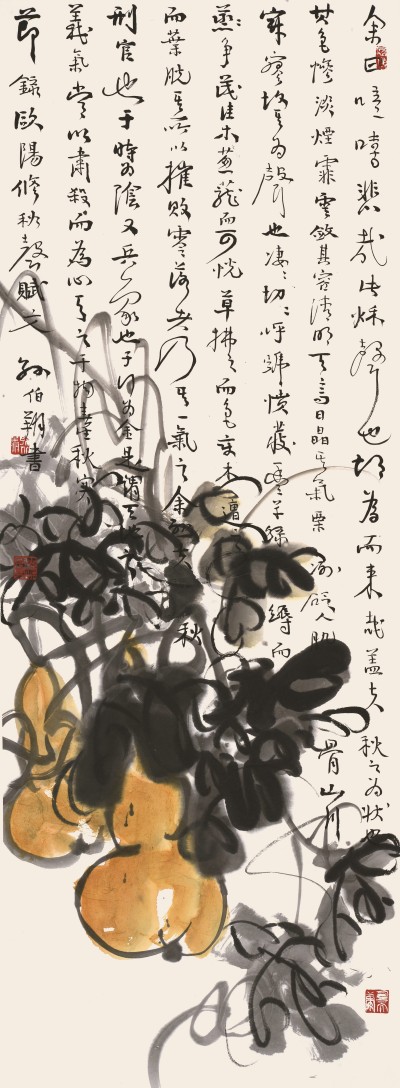 余曰噫嘻悲哉此秋聲也胡為而來哉蓋夫秋之為狀也
其色慘淡煙霏雲斂其容清明天高日晶其氣栗冽砭人肌骨山川
寂寥故其為聲也淒淒切切呼號憤發豐草綠縟而
爭茂佳木蔥蘢而可悅草拂之而色變木遭之
而葉脫其所以摧敗零落者乃其一氣之余烈夫秋
刑官也于時為陰又兵象也于行為金是謂天地之
義氣常以肅殺而為心天之于物春生秋實
節錄歐陽修秋聲賦文 孫伯翔書